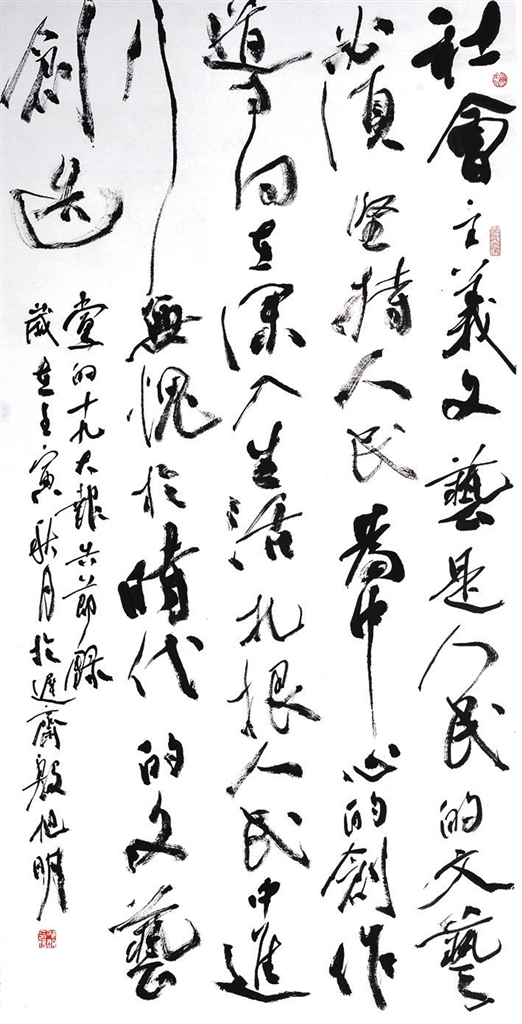 社會主義文藝是人民的文藝
必須坚持人民為中心的創作
導向在深入生活扎根人民中進
行無愧於時代的文藝
創造
党的十九大報告節録
歲在壬寅秋月於遲齋殷旭明